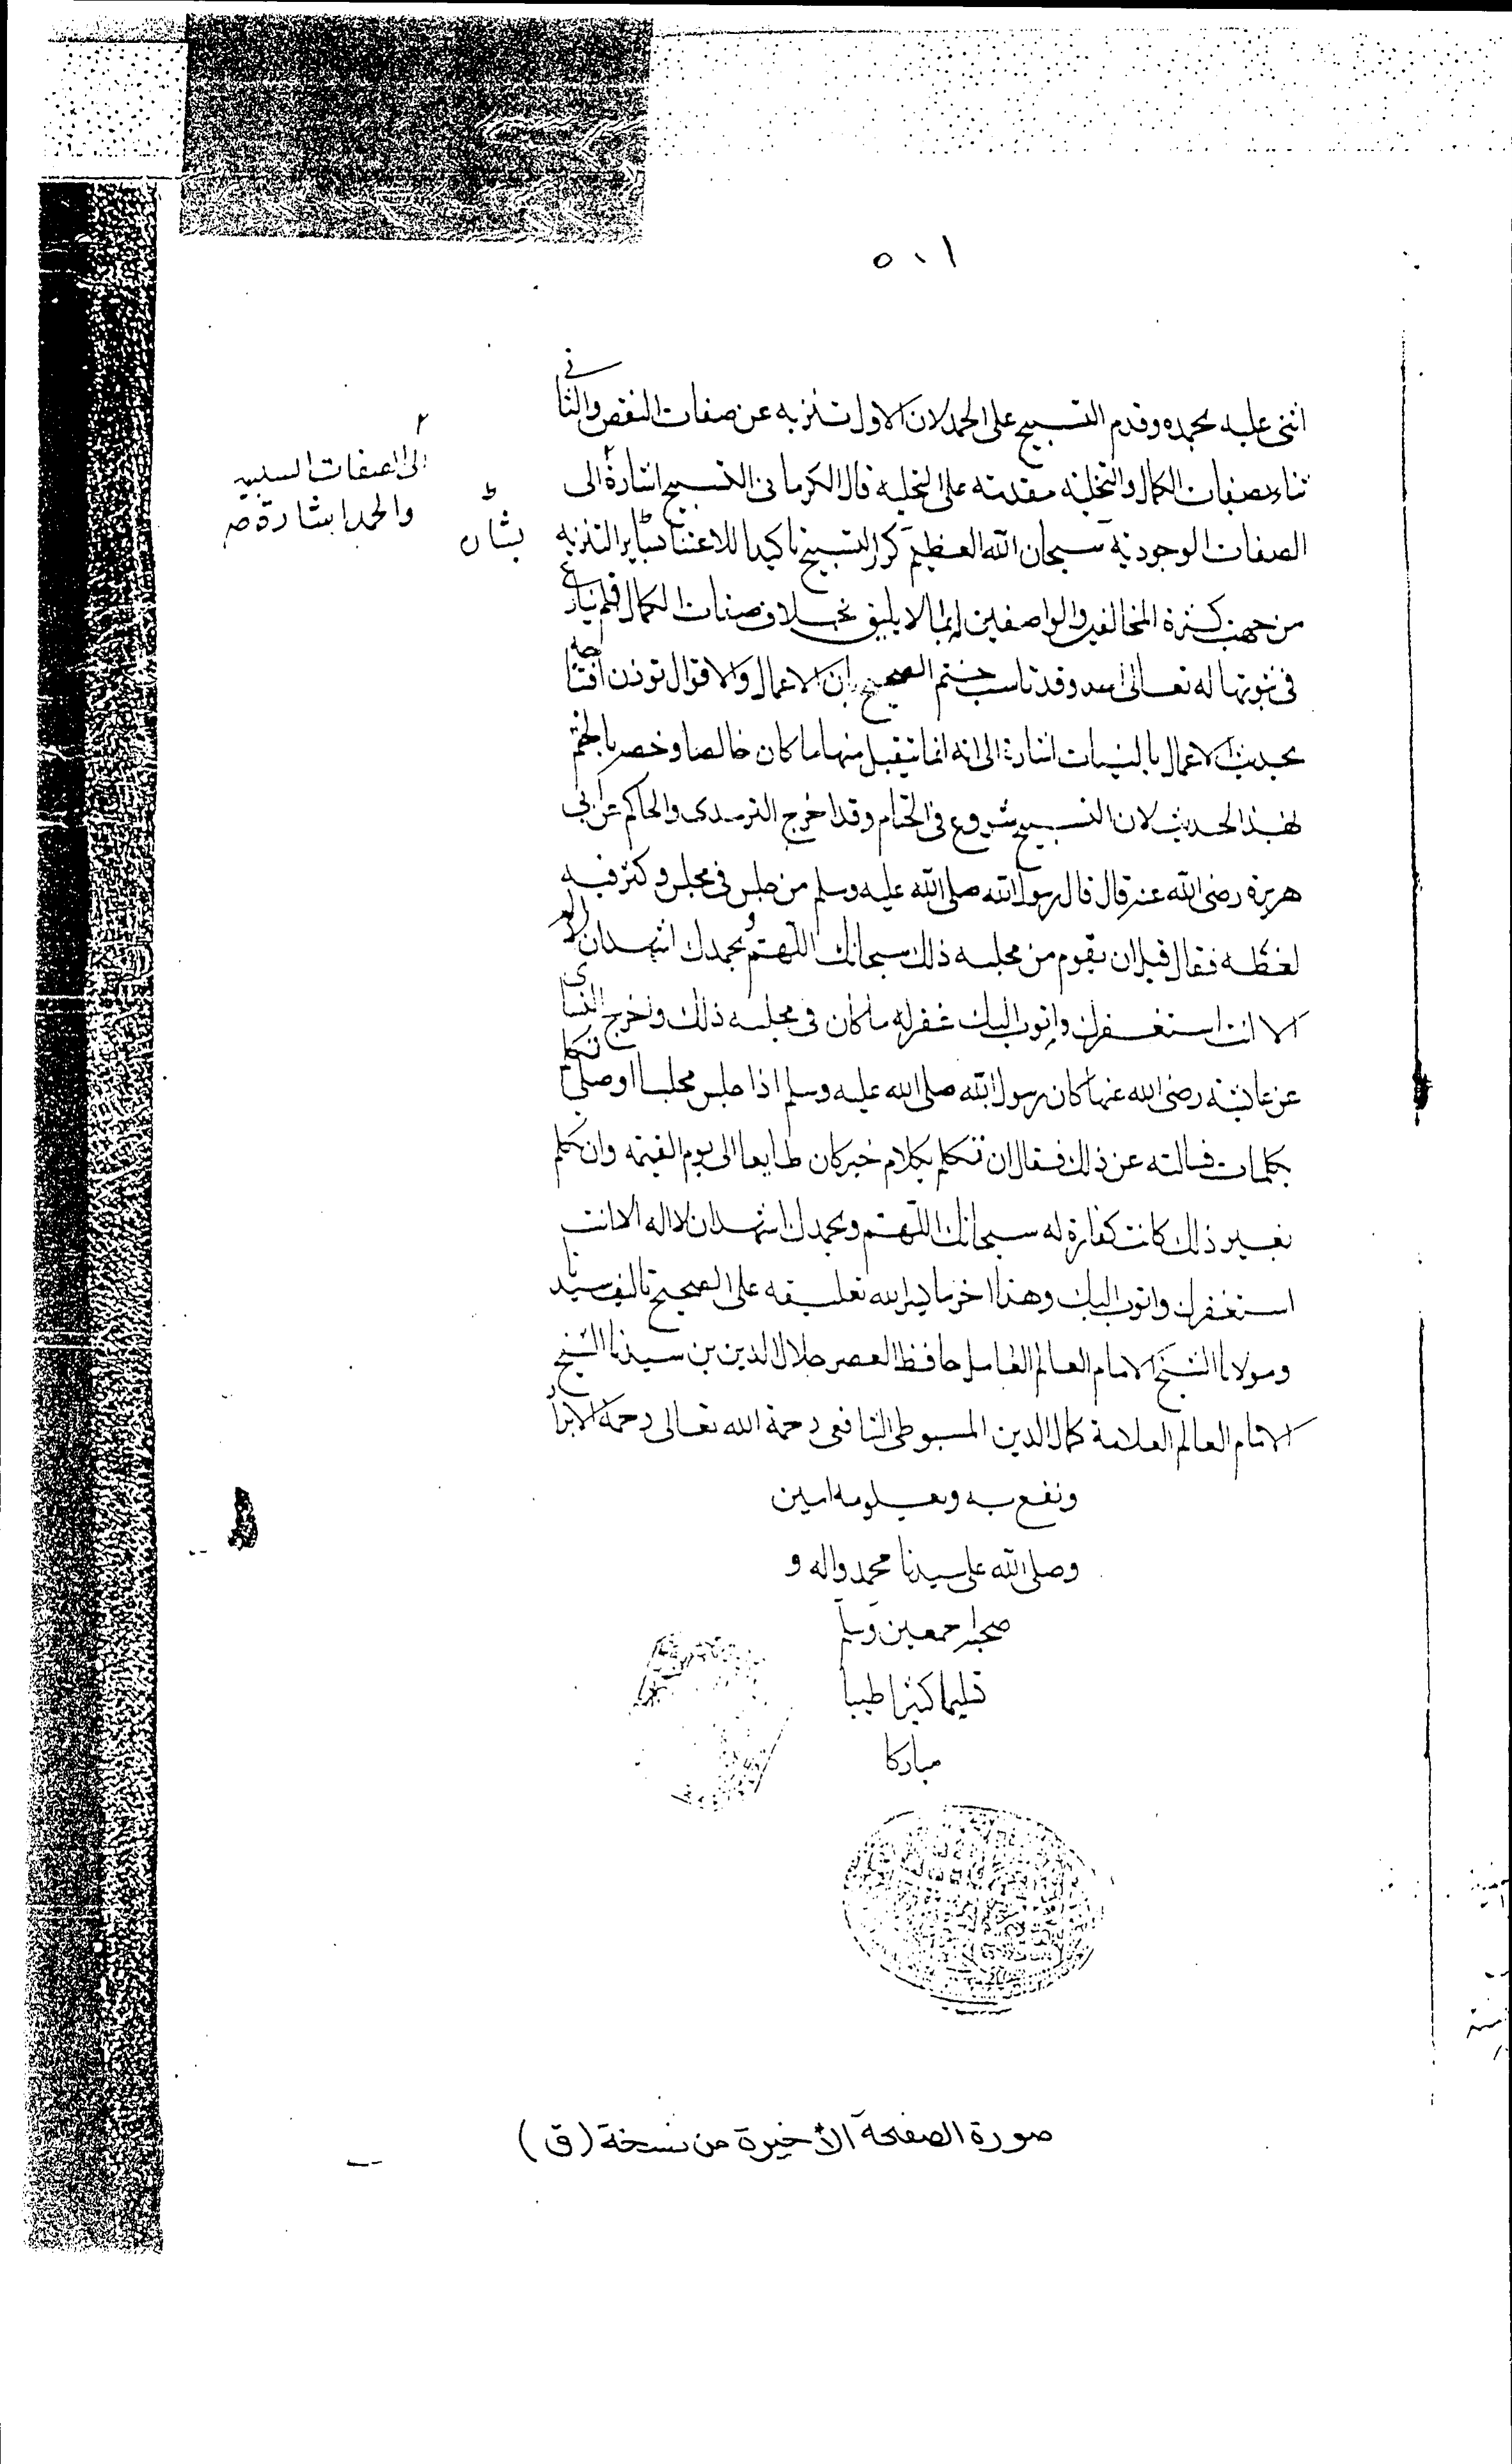 ٥٠١
اثنى عليه بحمده وقدم التسبيح على الحمد لان الاول تنزيه عن صفات النقص والثانى
ثناء بصفات الكمال والتخلية مقدمة على التحلية قال الكرمانى التسبيح اشارة الى
الى الصفات السلبيه
والحمد اشارة صح
الصفات الوجودية سبحان الله العظيم كرر التسبيح تاكيدا للاعتنا بساير التنزيه
بشان
من جهة كثرة المخالفين والواصفين له بما لا يليق بخلاف صفات الكمال فلم ينازع
فى ثبوتها له تعالى احد وقد ناسب ختم الصحيح بان الاعمال والاقوال توزن افتتاحه
بحديث الاعمال بالنيات اشارة الى انه انما يتقبل منها ما كان خالصا وخص بالختم
بهذا الحديث لان التسبيح مشروع فى الختام وقد اخرج الترمدى والحاكم عن ابى
هريرة رضى الله عنه قال قال رسول الله صلى الله عليه وسلم من جلس فى مجلس وكثر فيه
لغطه فقال قبل ان يقوم من مجلسه ذلك سبحانك اللهم وبحمدك اشهد ان لا اله
الا انت استغفرك واتوب اليك غفر له ما كان فى مجلسه ذلك واخرج النساى
عن عائشة رضى الله عنها كان رسول الله صلى الله عليه وسلم اذا جلس مجلسا او صلى تكلم
بكلمات فسالته عن ذلك فقال ان تكلم بكلام خير كان طابعا الى يوم القيمة وان تكلم
بغير ذلك كانت كفارة له سبحانك اللهم وبحمدك اشهد ان لا اله الا انت
استغفرك واتوب اليك وهذا اخر ما يسر الله تعليقه على الصحيح تاليف سيدنا
ومولانا الشيخ الامام العالم العامل حافظ العصر جلال الدين بن سيدنا الشيخ
الامام العالم العلامة كمال الدين السيوطى الشافعى رحمة الله تعالى رحمة الابرار
ونفع به وبعلومه امين
وصلى الله على سيدنا محمد واله و
صحبه اجمعين وسلم
تسليما كثيرا طيبا
مباركا
صورة الصفحة الأخيرة من نسخة (ق)